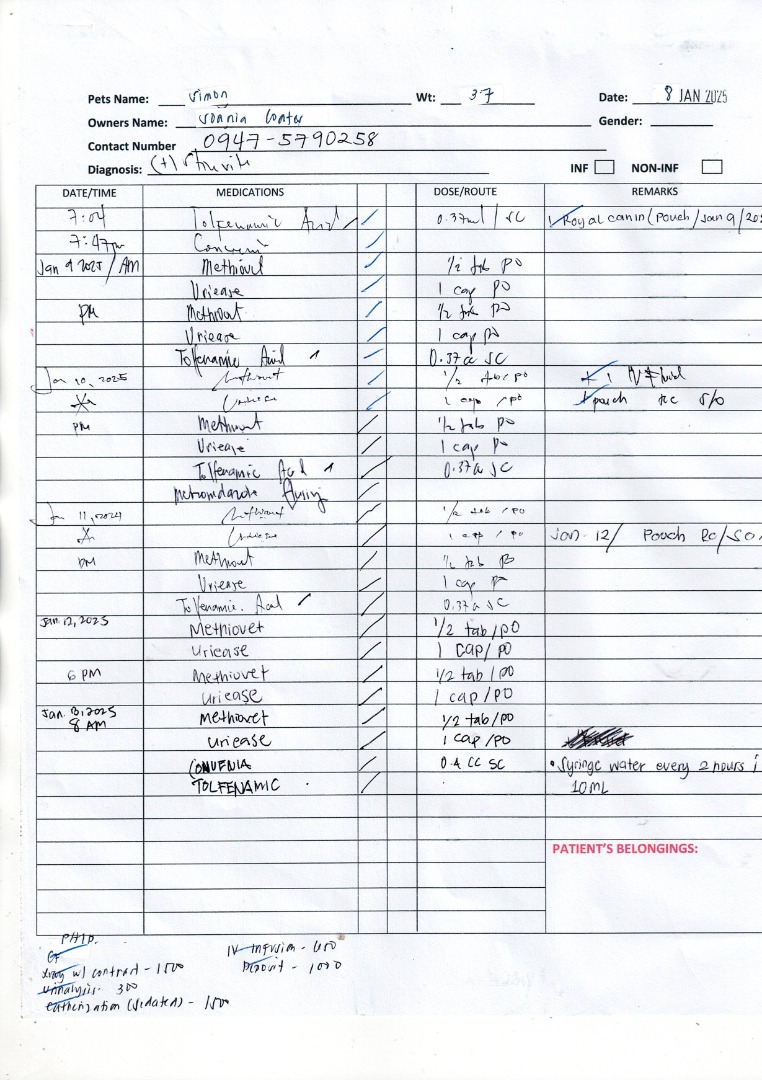 Pets Name: Simon Wt: 37 Date: 8 JAN 2025
Owners Name: Gender:
Contact Number 0947-5790258
Diagnosis: (+) Struvite INF NON-INF
DATE/TIME MEDICATIONS DOSE/ROUTE REMARKS
7:04 Tolfenamic Acid 0.37ml / SC Royal canin (Pouch / Jan 9 / 202
7:47pm
Jan 9 2025 / AM Methiovet 1/2 tab PO
Uriease 1 cap PO
PM Methiovet 1/2 tab PO
Uriease 1 cap PO
Tolfenamic Acid 0.37cc SC
Jan 10, 2025 Methiovet 1/2 tab/po 1 IV Fluid
Uriease 1 cap /po pouch rc S/O
PM Methiovet 1/2 tab PO
Uriease 1 cap PO
Tolfenamic Acid 0.37cc SC
Metronidazole
Jan 11, 2024 Methiovet 1/2 tab / po
Uriease 1 cap / po Jan-12/ Pouch RC/SO
PM Methiovet 1/2 tab PO
Uriease 1 cap PO
Tolfenamic. Acid 0.37cc SC
Jan. 12, 2025 Methiovet 1/2 tab/po
Uriease 1 cap/ po
6 PM Methiovet 1/2 tab / PO
uriease 1 cap / PO
Jan. 13, 2025 Methiovet 1/2 tab/po
8 AM
uriease 1 cap /po
CONVENIA 0.4 CC SC • Syringe water every 2 hours
TOLFENAMIC 10 ML
PATIENT'S BELONGINGS:
PAID.
CF IV Infusion - 650
xray w/ contrast - 1500 Deposit - 1000
urinalysis - 300
catherization (sedated) - 1500